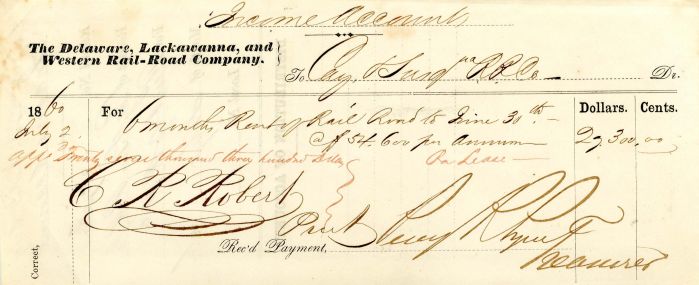 Income Accounts
The Delaware, Lackawanna, and
Western Rail-Road Company.
To Cay. & Susqna R. R. Co Dr.
1860 For 6 months Rent of Rail Road to June 30th Dollars. Cents.
July 2 @ $54.600 per Annum 27,300.00
App'd Twenty seven thousand three hundred Dollars Per Lease
C R Robert
Prest
Rec'd Payment,
Treasurer
Correct,